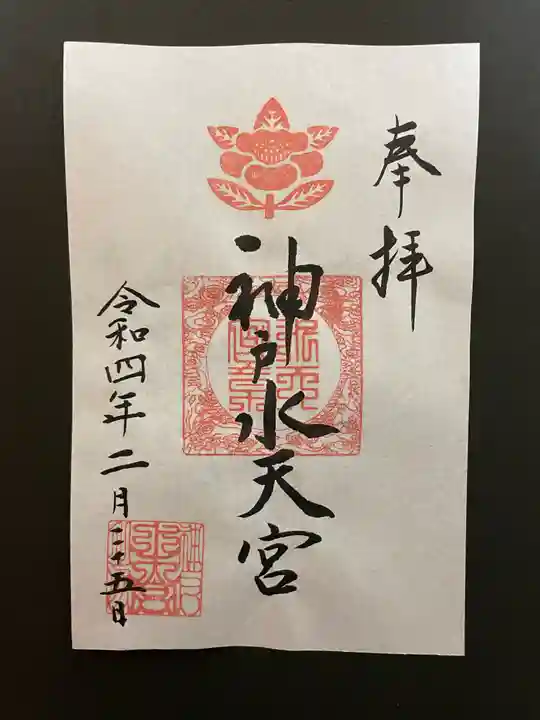 奉拝
神戸水天宮
令和四年二月二十五日